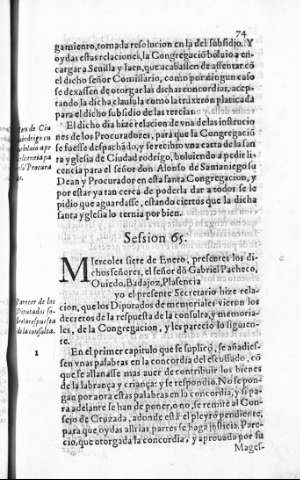 74
gamiento, tomada resolucion en la del subsidio. Y
oydas estas relaciones, la Congregació boluio a en-
cargar a Seuilla y Iaen, que acabassen de assentar có
el dicho señor Comissario, como por ningun caso
se dexassen de otorgar las dichas concordias, acep-
tando la dicha clausula como la truxeron platicada
para el dicho subsidio de las tercias.
El dicho dia hize relacion de vna de las instrucio
nes de los Procuradores, para que la Congregació
se fuesse despachãdo, y se recibio vna carta de la san
ta yglesia de Ciudad rodrigo, boluiendo a pedir li-
cencia para el señor don Alonso de Samaniego su
Dean y Procurador en esta santa Congregacion, y
por estar ya tan cerca de poderla dar a todos se le
pidio que aguardasse, estando ciertos que la dicha
santa yglesia lo ternia por bien.
Dean de Ciu
rodrigo en
boluio a pe
licencia para
Procura
Session 65.
Miercoles siete de Enero, presentes los di-
chos señores, el señor dõ Gabriel Pacheco,
Ouiedo, Badajoz, Plasencia
yo el presente Secretario hize rela-
cion, que los Diputados de memoriales vieron los
decretos de la respuesta de la consulta, y memoria-
les, de la Congregacion, y les parecio lo siguien-
te.
Parecer de los
Diputados so-
bre la respuesta
de la consulta.
1
En el primer capitulo que se suplicó, se añadies-
sen vnas palabras en la concordia del escusado, có
que se allanasse mas auer de contribuir los bienes
de la labrança y criança: y se respondio. No se pon-
gan por aora estas palabras en la concordia, y si pa-
ra adelante se han de poner, o no, se remite al Con-
sejo de Cruzada, adonde está el pleyto pendiente,
para que oydas alli las partes se haga justicia. Pare-
cio, que otorgada la concordia, y aprouada por su
Mages-